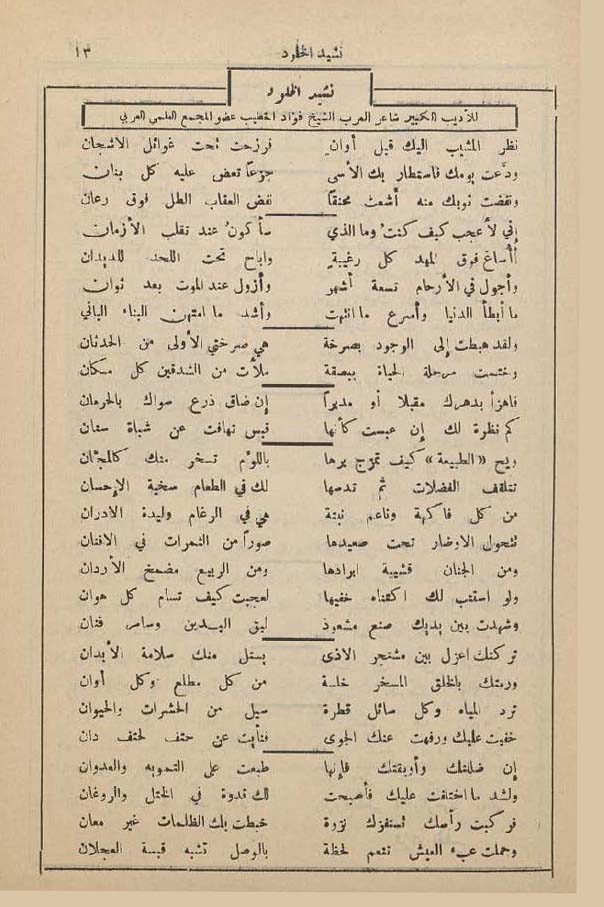 نشيد الخلود ١٣
نشيد الخلود
للأديب الكبير شاعر العرب الشيخ فؤاد الخطيب عضو المجمع العلمي العربي
نظر المشيب اليك قبل أوان فرزحت تحت غوائل الاشجان
ودَّعت يومك فاستطار بك الأسى جزعاً تعض عليه كل بنان
ونفضت ثوبك منه أشعث محنقاً نفض العقاب الطل فوق رعان
إني لأعجب كيف كنت وما الذي سأكون عند تقلب الأزمان
أأساغ فوق المهد كل رغيبة واباح تحت اللحد للديدان
وأجول في الأرحام تسعة أشهر وأزول عند الموت بعد ثوان
ما أبطأ الدنيا وأسرع ما انتهت وأشد ما امتهن البناء الباني
ولقد هبطت إلى الوجود بصرخة هي صرختي الأولى من الحدثان
وختمت مرحلة الحياة ببصقة ملأت من الشدقين كل مكان
فاهزأ بدهرك مقبلا أو مدبراً إن ضاق ذرع سواك بالحرمان
كم نظرة لك إن عبست كأنها قبس تهافت عن شباة سنان
ويح «الطبيعة» كيف تمزج برها باللؤم تسخر منك كالمجان
تتلقف الفضلات ثم تدسها لك في الطعام سخية الإحسان
من كل فاكهة وناعم نبتة هي في الرغام وليدة الادران
تتحول الاوضار تحت صعيدها صوراً من الثمرات في الافنان
ومن الجنان قشيبة ابرادها ومن الربيع مضمخ الأردان
ولو استتب لك اكتناه خفيها لعجبت كيف تسام كل هوان
وشهدت بين يديك صنع مشعوذ لبق اليدين وساحر فتان
تركتك اعزل بين مشتجر الاذى يستل منك سلامة الأبدان
ورمتك بالخلق المسخر خلسة من كل مطلع وكل أوان
ترد المياه وكل سائل قطرة سيل من الحشرات والحيوان
خفيت عليك ورفهت عنك الجوى فنأيت عن حتف لحتف دان
إن ضللتك وأوبقتك فإنها طبعت على التمويه والعدوان
ولشد ما اختلفت عليك فأصبحت لك قدوة في الختل والروغان
فركبت رأسك تستفزك نزوة خبطت بك الظلمات غير معان
وحملت عبء العيش تنعم لحظة بالوصل تشبه قبسة العجلان